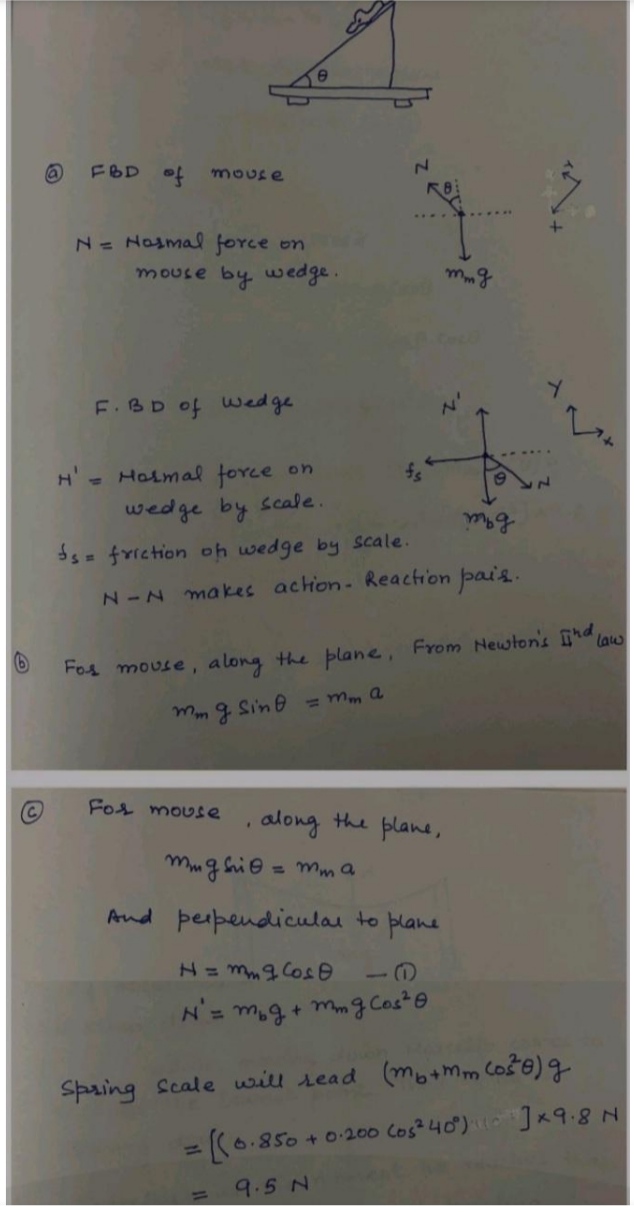 θ
ⓐ FBD of mouse
N
θ
+
N = Normal force on
mouse by wedge.
mₘg
F.BD of wedge
N'
Y
x
fₛ
θ
N
N' = Normal force on
wedge by scale.
m_bg
fₛ = friction on wedge by scale.
N-N makes action-Reaction pair.
ⓑ For mouse, along the plane, From Newton's IInd law
mₘg Sinθ = mₘa
ⓒ For mouse, along the plane,
mₘg Sinθ = mₘa
And perpendicular to plane
N = mₘg Cosθ —①
N' = m_bg + mₘg Cos²θ
Spring Scale will read (m_b+mₘ Cos²θ)g
= [(0.850 + 0.200 Cos²40°) ]×9.8 N
= 9.5 N